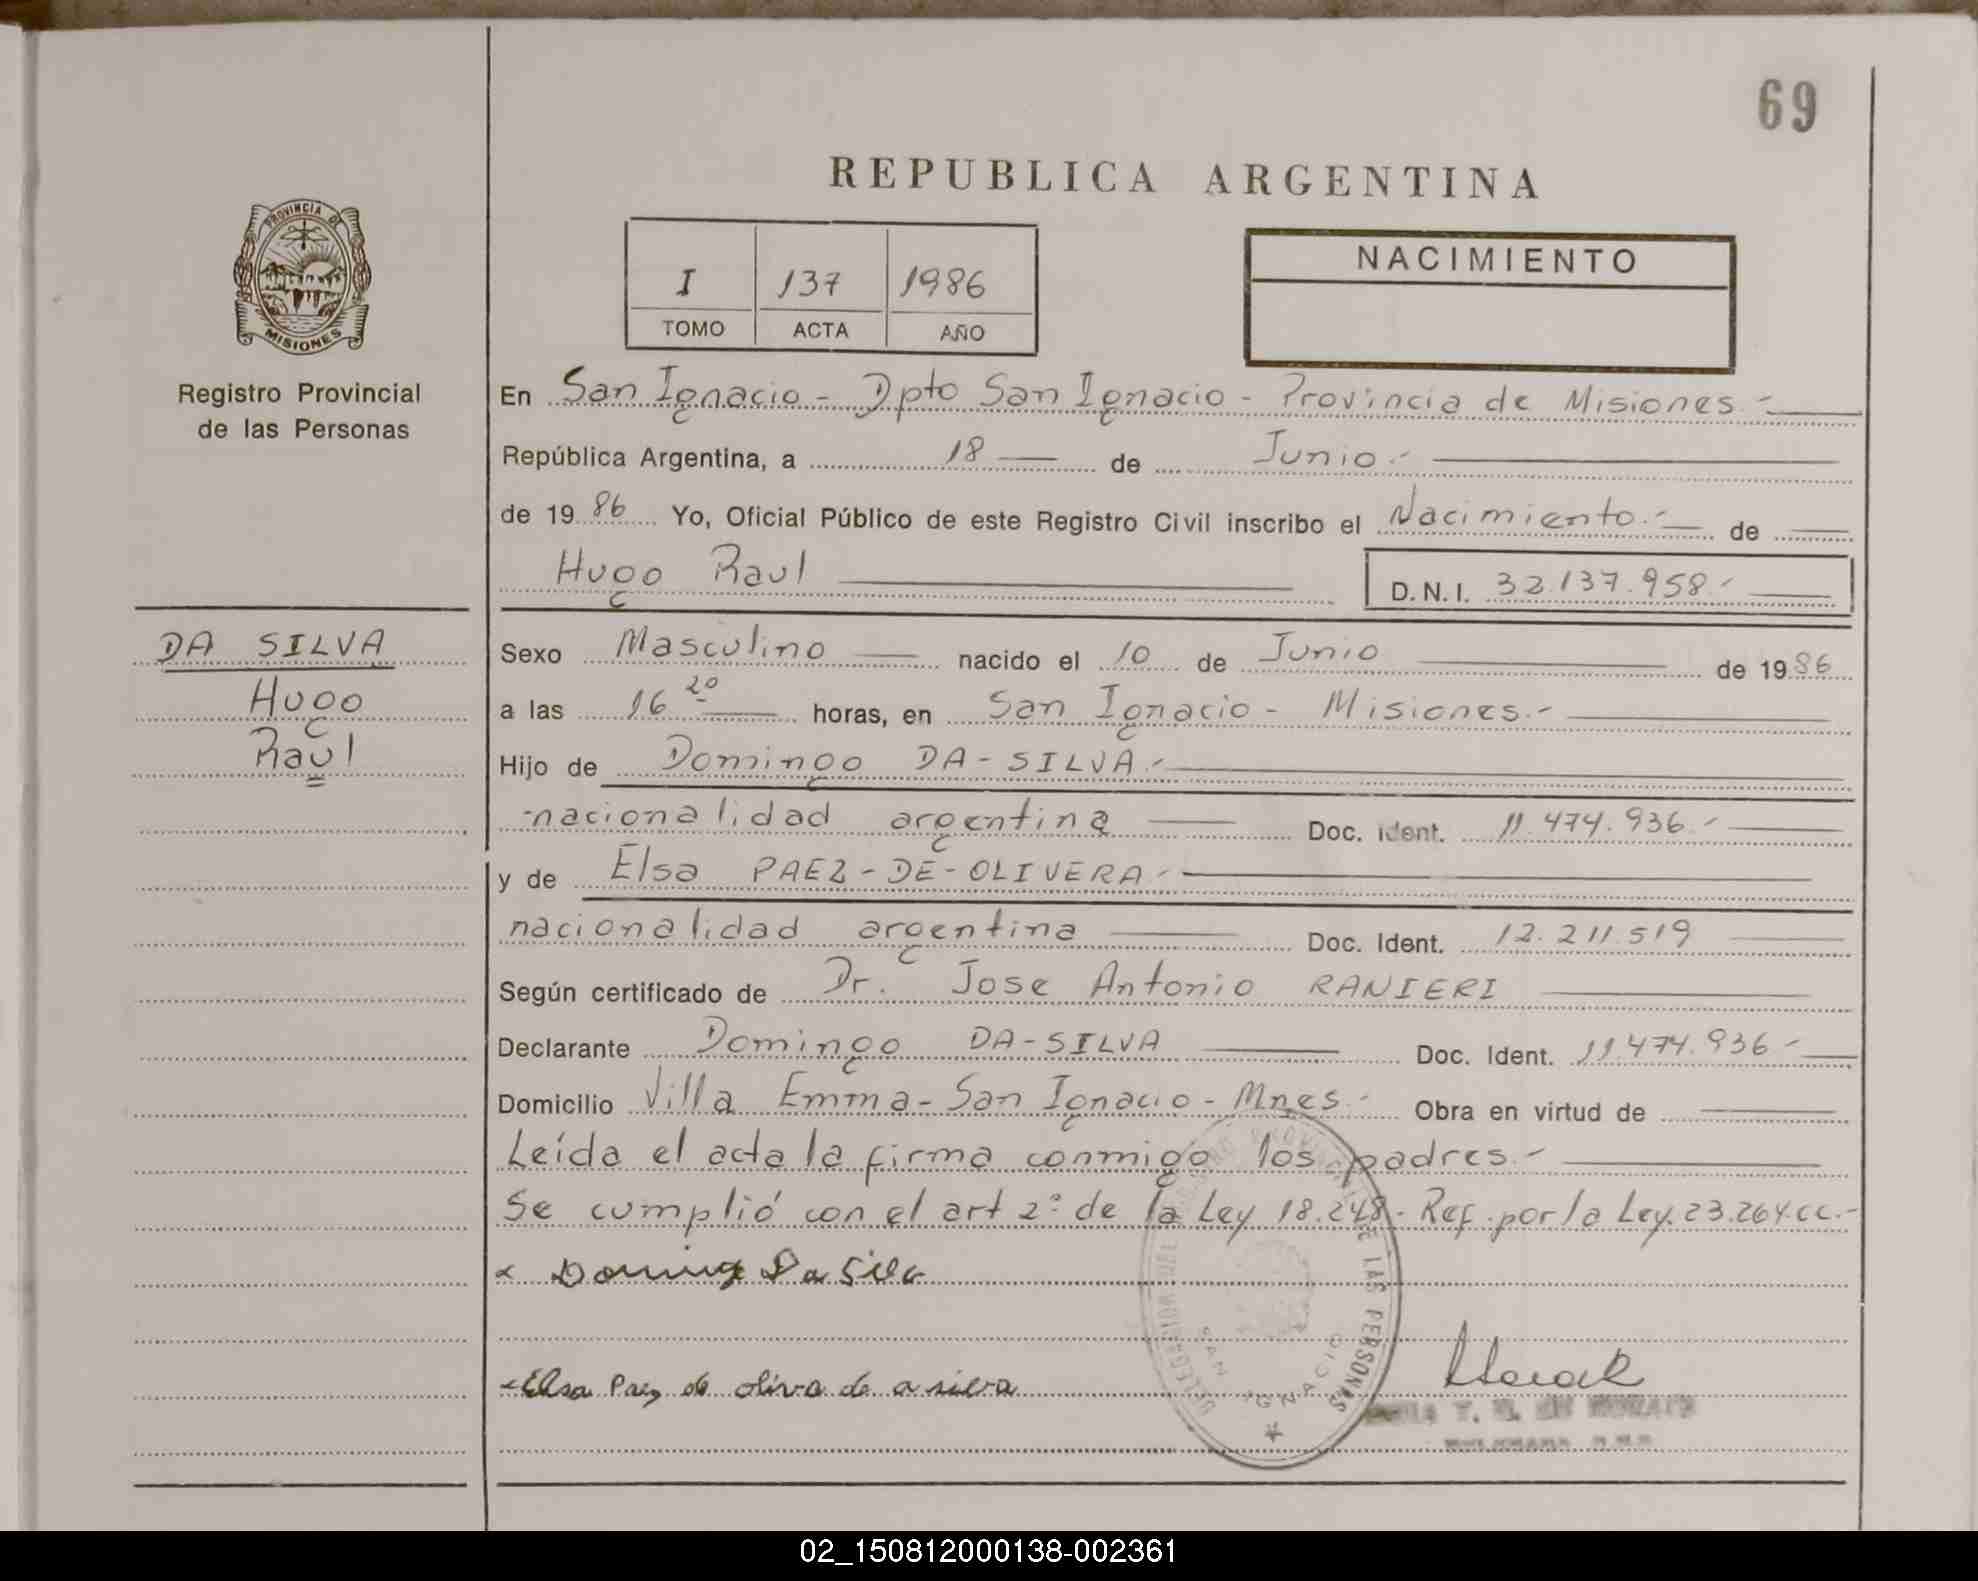 69
REPUBLICA ARGENTINA
PROVINCIA DE
MISIONES
Registro Provincial
de las Personas
I 137 1986
TOMO ACTA AÑO
NACIMIENTO
En San Ignacio - Dpto San Ignacio - Provincia de Misiones.-
República Argentina, a 18 de Junio.-
de 1986 Yo, Oficial Público de este Registro Civil inscribo el Nacimiento.- de
Hugo Raul D.N.I. 32.137.958.-
DA SILVA
Hugo
Raul
Sexo Masculino nacido el 10 de Junio de 1986
a las 16 20 horas, en San Ignacio - Misiones.-
Hijo de Domingo DA-SILVA.-
nacionalidad argentina Doc. ident. 11.474.936.-
y de Elsa PAEZ-DE-OLIVERA.-
nacionalidad argentina Doc. Ident. 12.211.519
Según certificado de Dr. Jose Antonio RANIERI
Declarante Domingo DA-SILVA Doc. Ident. 11.474.936-
Domicilio Villa Emma - San Ignacio - Mnes.- Obra en virtud de
Leída el acta la firma conmigo los padres.-
Se cumplió con el art 2º de la Ley 18.248- Ref. por la Ley. 23.264.cc.-
Da Silva
Elsa Paez de oliva de a silva
DELEGACION DEL REGISTRO PROVINCIAL DE LAS PERSONAS
SAN IGNACIO
02_150812000138-002361